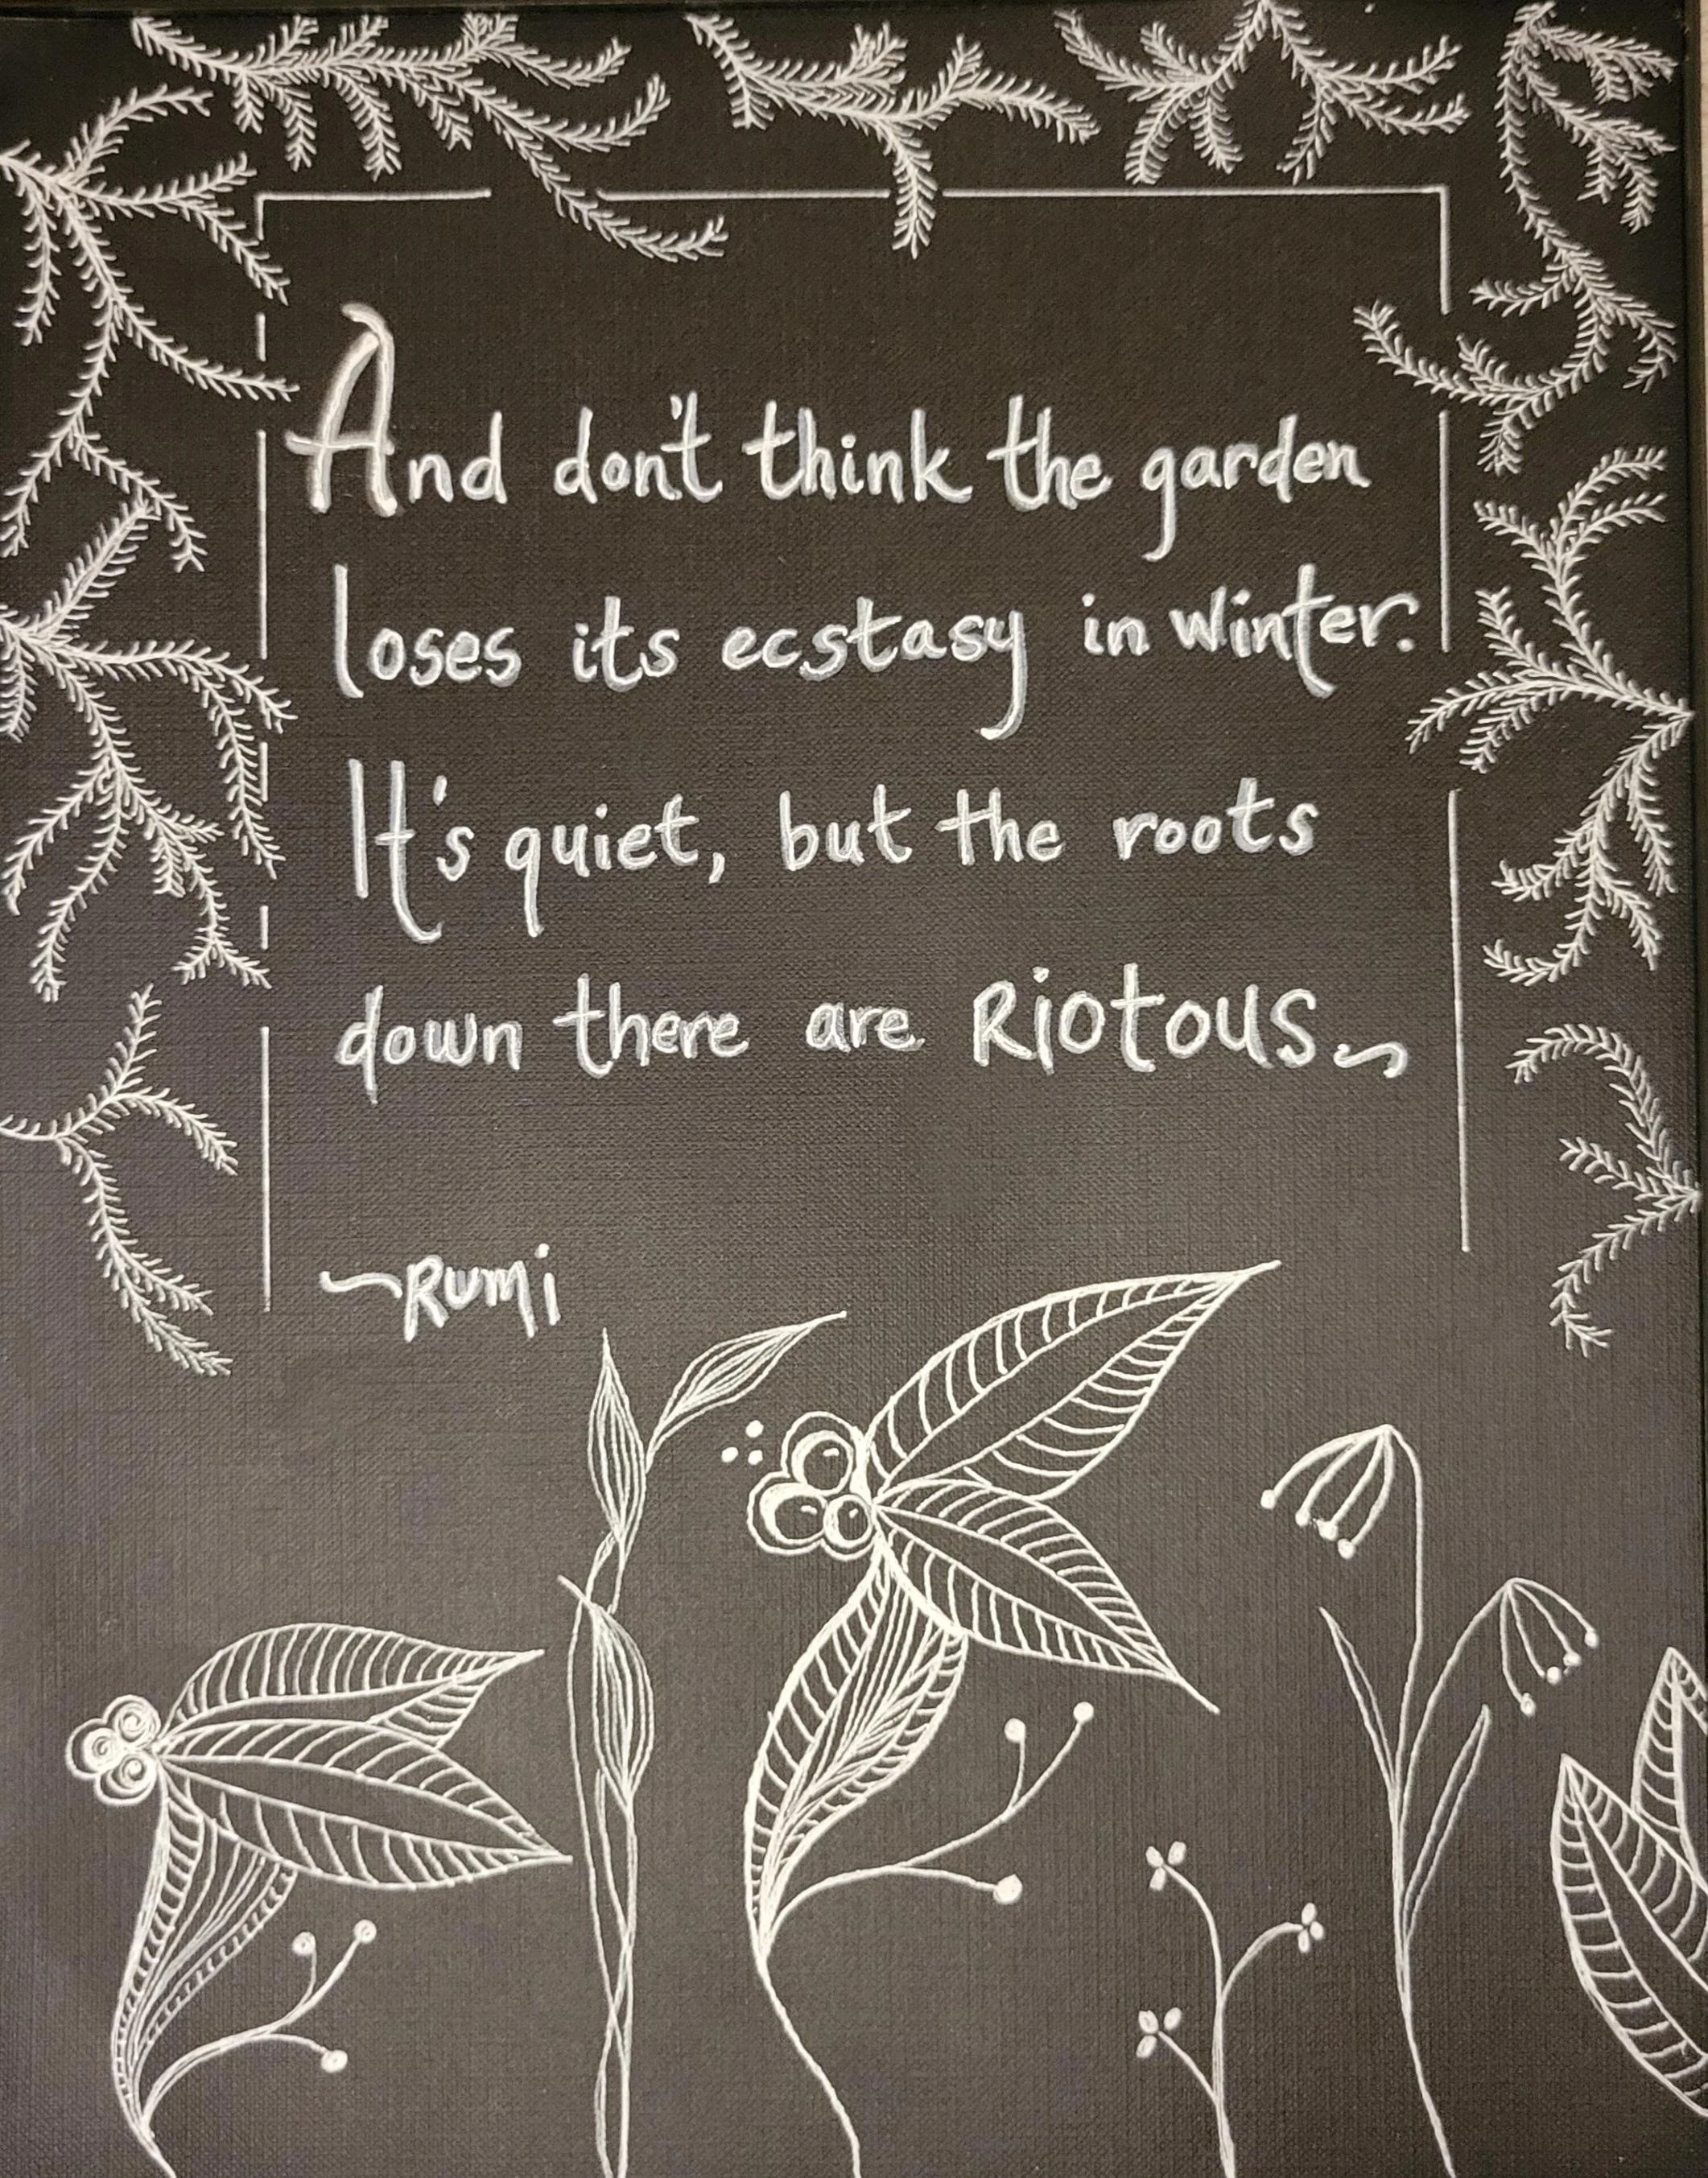 And don't think the garden
loses its ecstasy in winter.
It's quiet, but the roots
down there are Riotous
~Rumi